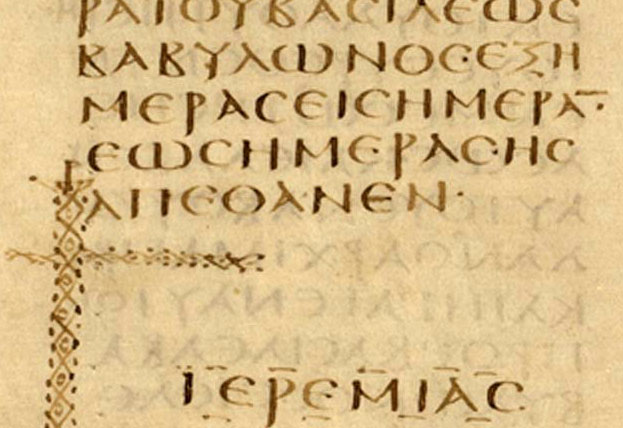 ΡΑΤΟΥΒΑϹΙΛΕΩϹ
ΒΑΒΥΛΩΝΟϹΕΞΗ
ΜΕΡΑϹΕΙϹΗΜΕΡΑ̅·
ΕΩϹΗΜΕΡΑϹΗϹ
ΑΠΕΘΑΝΕΝ·
ΙΕΡΕΜΙΑϹ